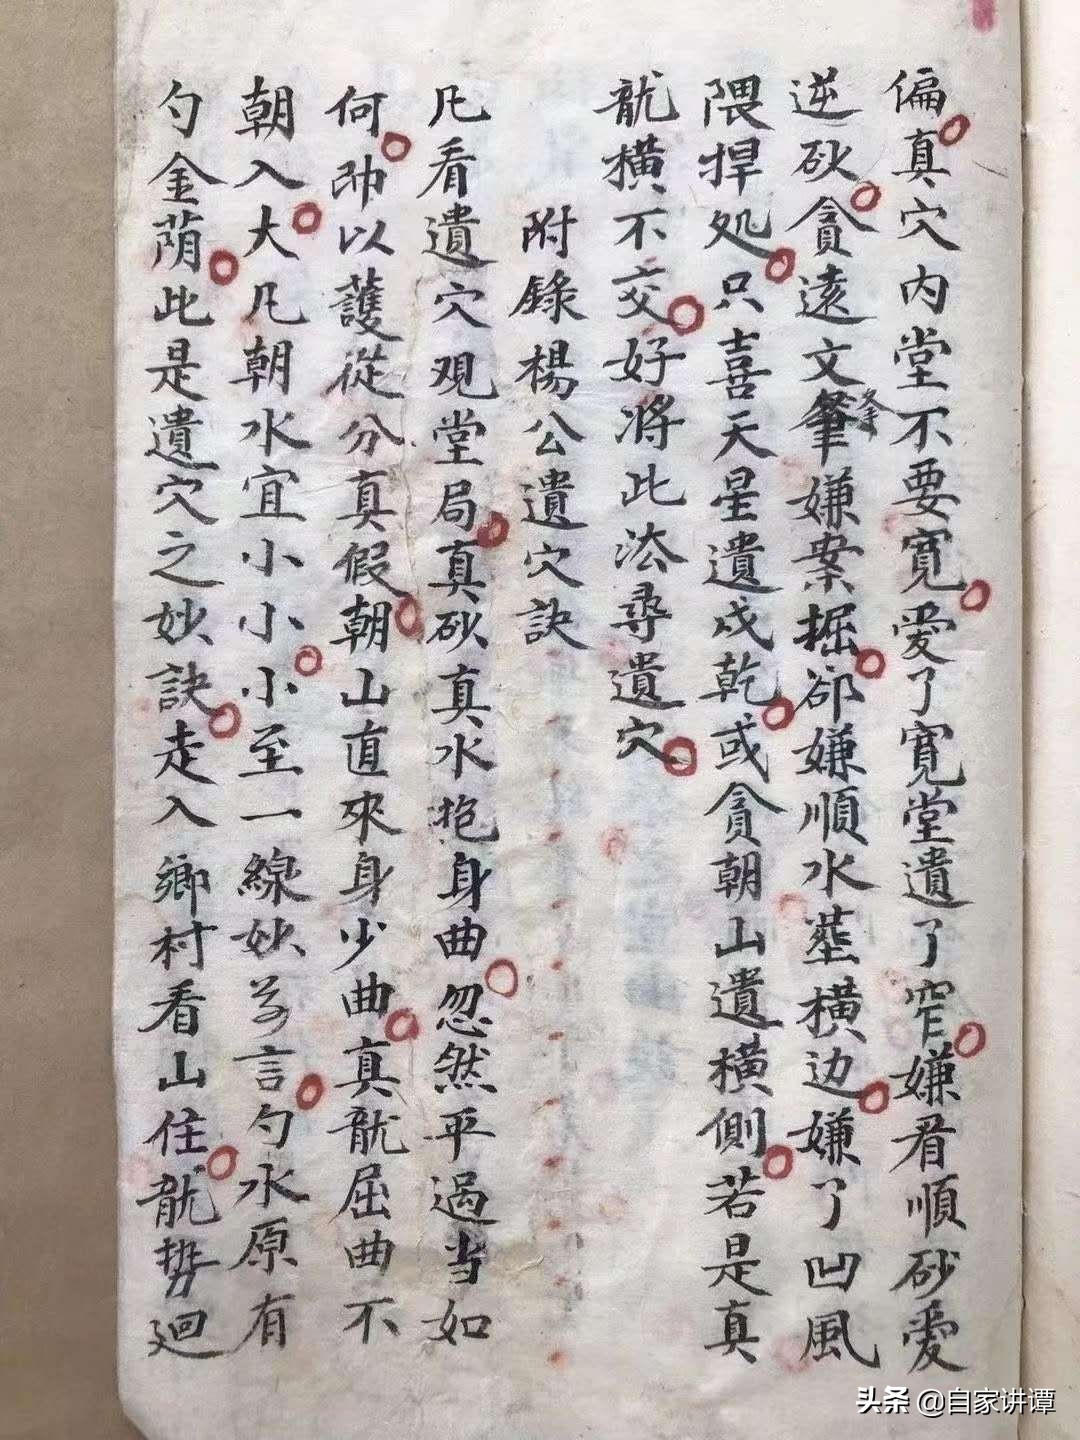 偏真穴内堂不要寬愛了寬堂遺了窄嫌看順砂愛
逆砍貪遠文筆峯嫌案掘郤嫌順水塟横边嫌了凹風
隈捍処只喜天星遺戍乾或貪朝山遺横側若是真
龍横不交好将此法尋遺穴
附錄楊公遺穴訣
凡看遺穴观堂局真砂真水抱身曲忽然平過当如
何帅以護從分真假朝山直來身少曲真龍屈曲不
朝入大凡朝水宜小小小至一線妙言勺水原有
勺金荫此是遺穴之妙訣走入鄉村看山住龍势迴
头条 @自家讲谭